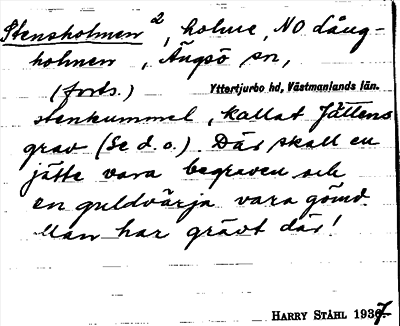 Stensholmen 2, holme, NO Lång-
holmen, Ängsö sn,
(forts.) Yttertjurbo hd, Västmanlands län.
stenkummel, kallat Jättens
grav (se d. o.). Där skall en
jätte vara begraven och
en guldvärja vara gömd.
Man har grävt där!
HARRY STÅHL 1937